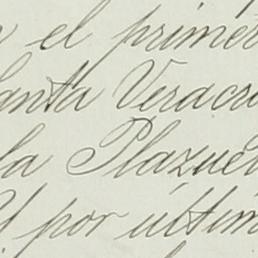 el primer
Santa Veracru
la Plazuel
por últim